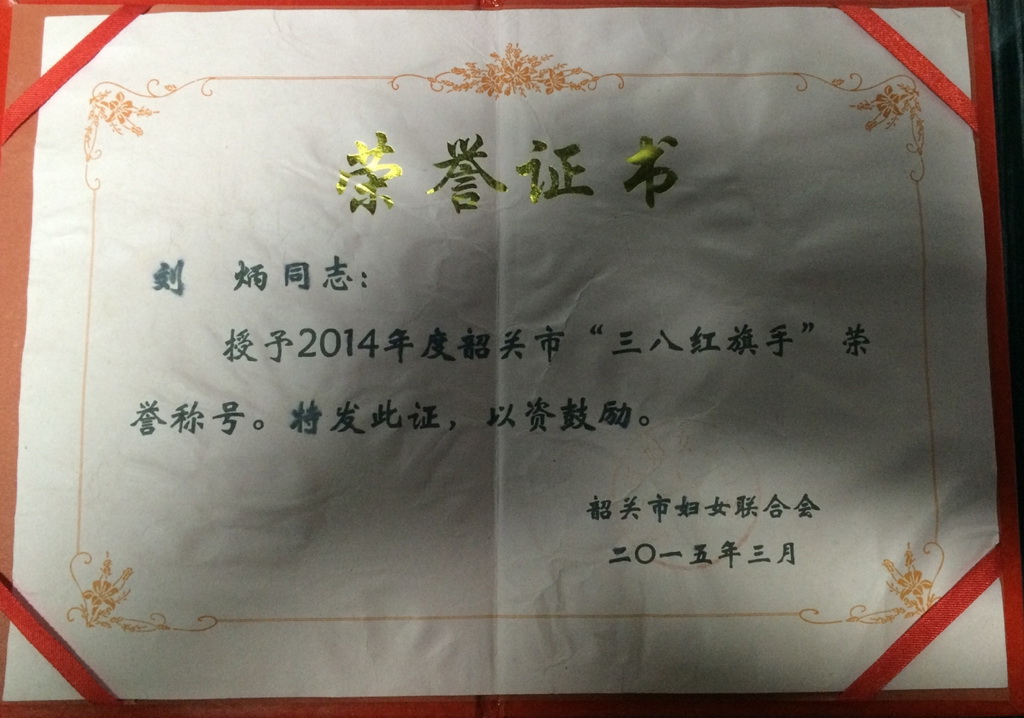 荣誉证书
刘 炳同志：
授予2014年度韶关市“三八红旗手”荣
誉称号。特发此证，以资鼓励。
韶关市妇女联合会
二〇一五年三月